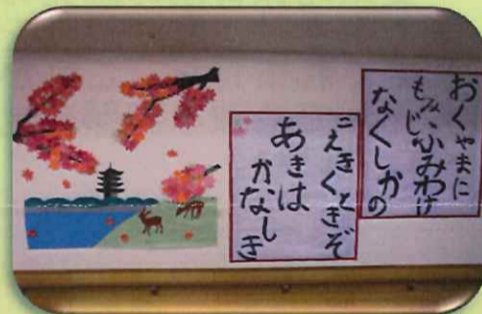 おくやまに
もみじふみわけ
なくしかの
こえきくときぞ
あきは
かなしき